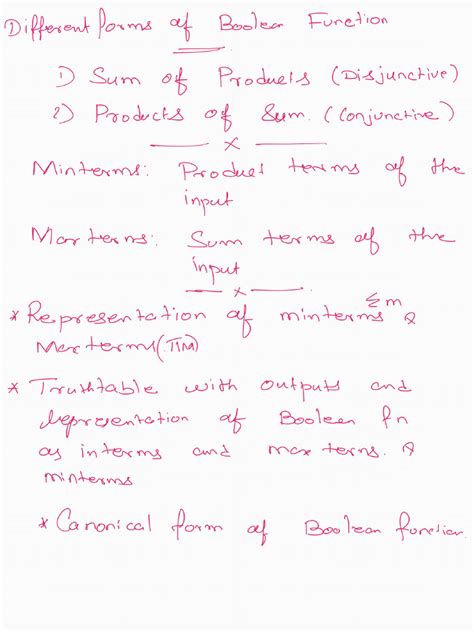 Different forms of Boolean Function
1) Sum of Products (Disjunctive)
2) Products of Sum. (Conjunctive)
x
Minterms: Product terms of the
input
Maxterms: Sum terms of the
input
x
* Representation of minterms Σm &
Maxterms (ΠM)
* Truthtable with outputs and
representation of Boolean fn
as in terms and max terms. &
minterms
* Canonical form of Boolean function.